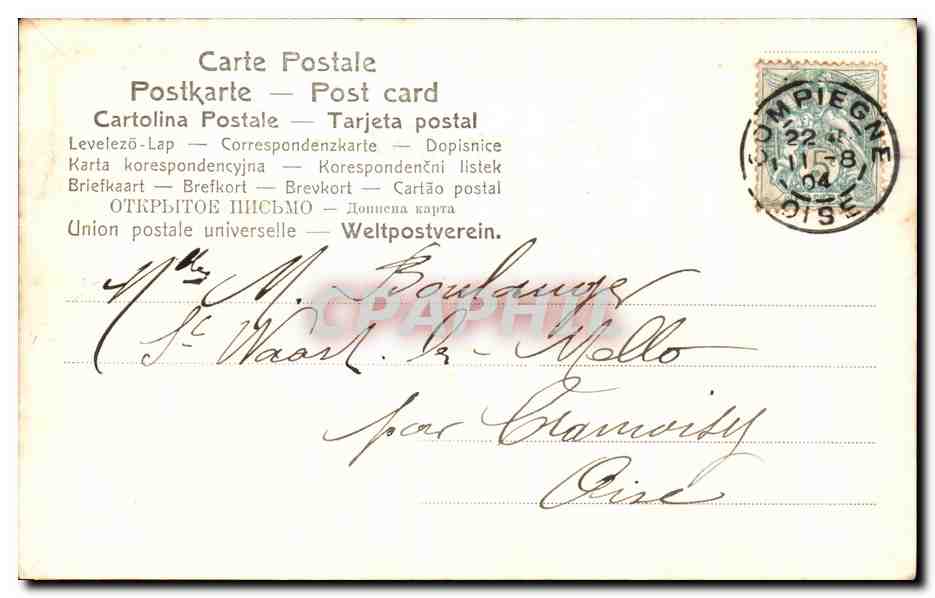 Carte Postale
Postkarte — Post card
Cartolina Postale — Tarjeta postal
Levelezö-Lap — Correspondenzkarte — Dopisnice
Karta korespondencyjna — Korespondenční listek
Briefkaart — Brefkort — Brevkort — Cartão postal
ОТКРЫТОЕ ПИСЬМО — Дописна карта
Union postale universelle — Weltpostverein.
COMPIEGNE
22
11 -8
04
OISE
5
CPAPHIL
Mlle M. Boulanger
St Waast. les- Mello
par Cramoisy
Oise